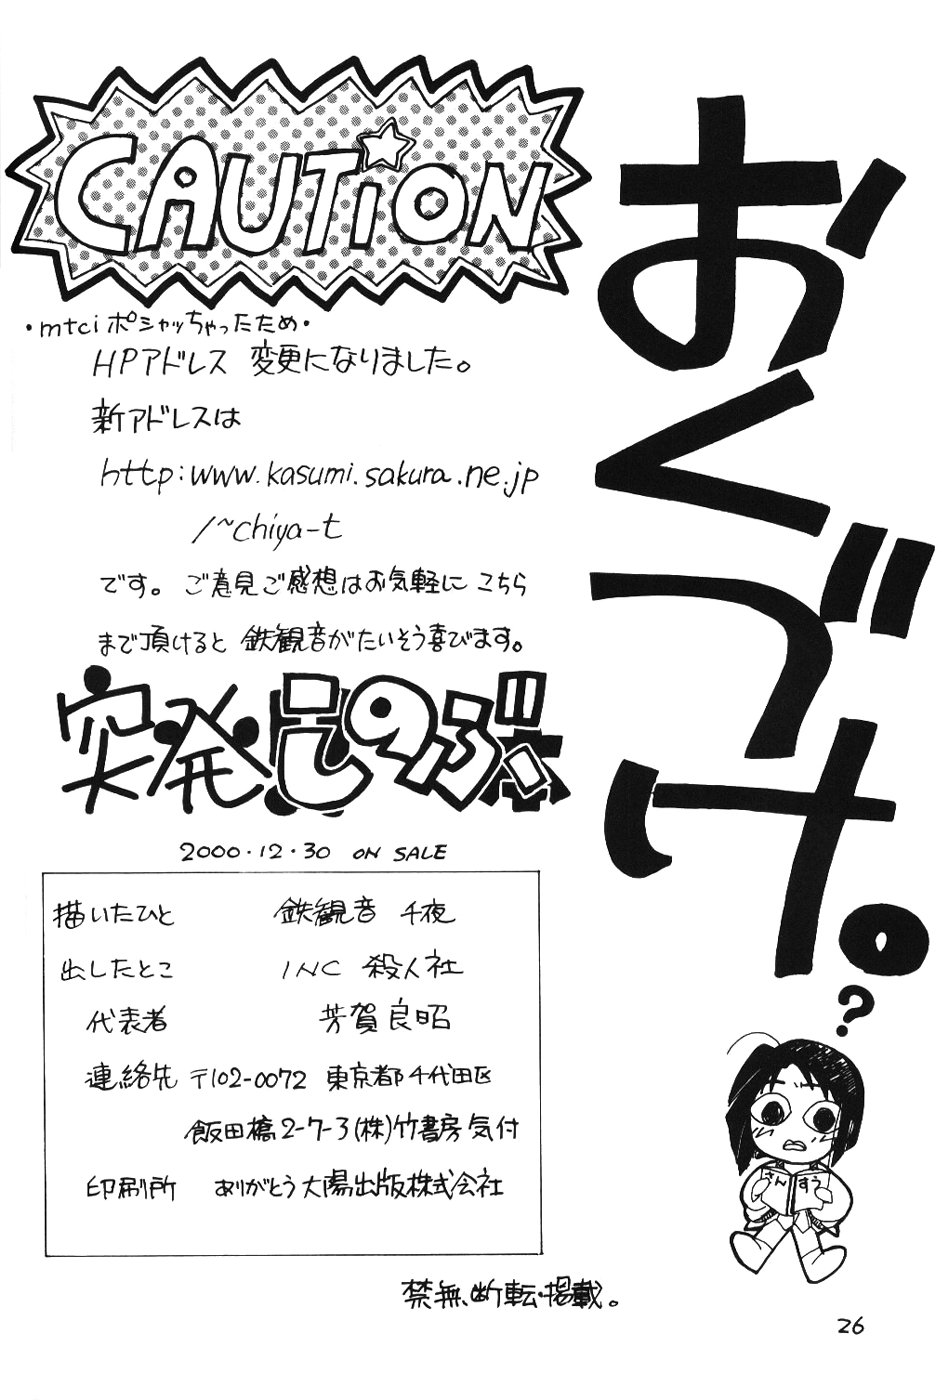 おくづけ。
CAUTION
・mtciポシャッちゃったため・
HPアドレス 変更になりました。
新アドレスは
http:www.kasumi.sakura.ne.jp
/~chiya-t
です。ご意見ご感想はお気軽に こちら
まで頂けると 鉄観音がたいそう喜びます。
突発しのぶ本
2000・12・30 ON SALE
描いたひと 鉄観音 千夜
出したとこ INC 殺人社
代表者 芳賀良昭
連絡先 〒102-0072 東京都千代田区
飯田橋2-7-3(株)竹書房気付
印刷所 ありがとう大陽出版株式会社
?
さん すう
禁無断転・掲載。
26